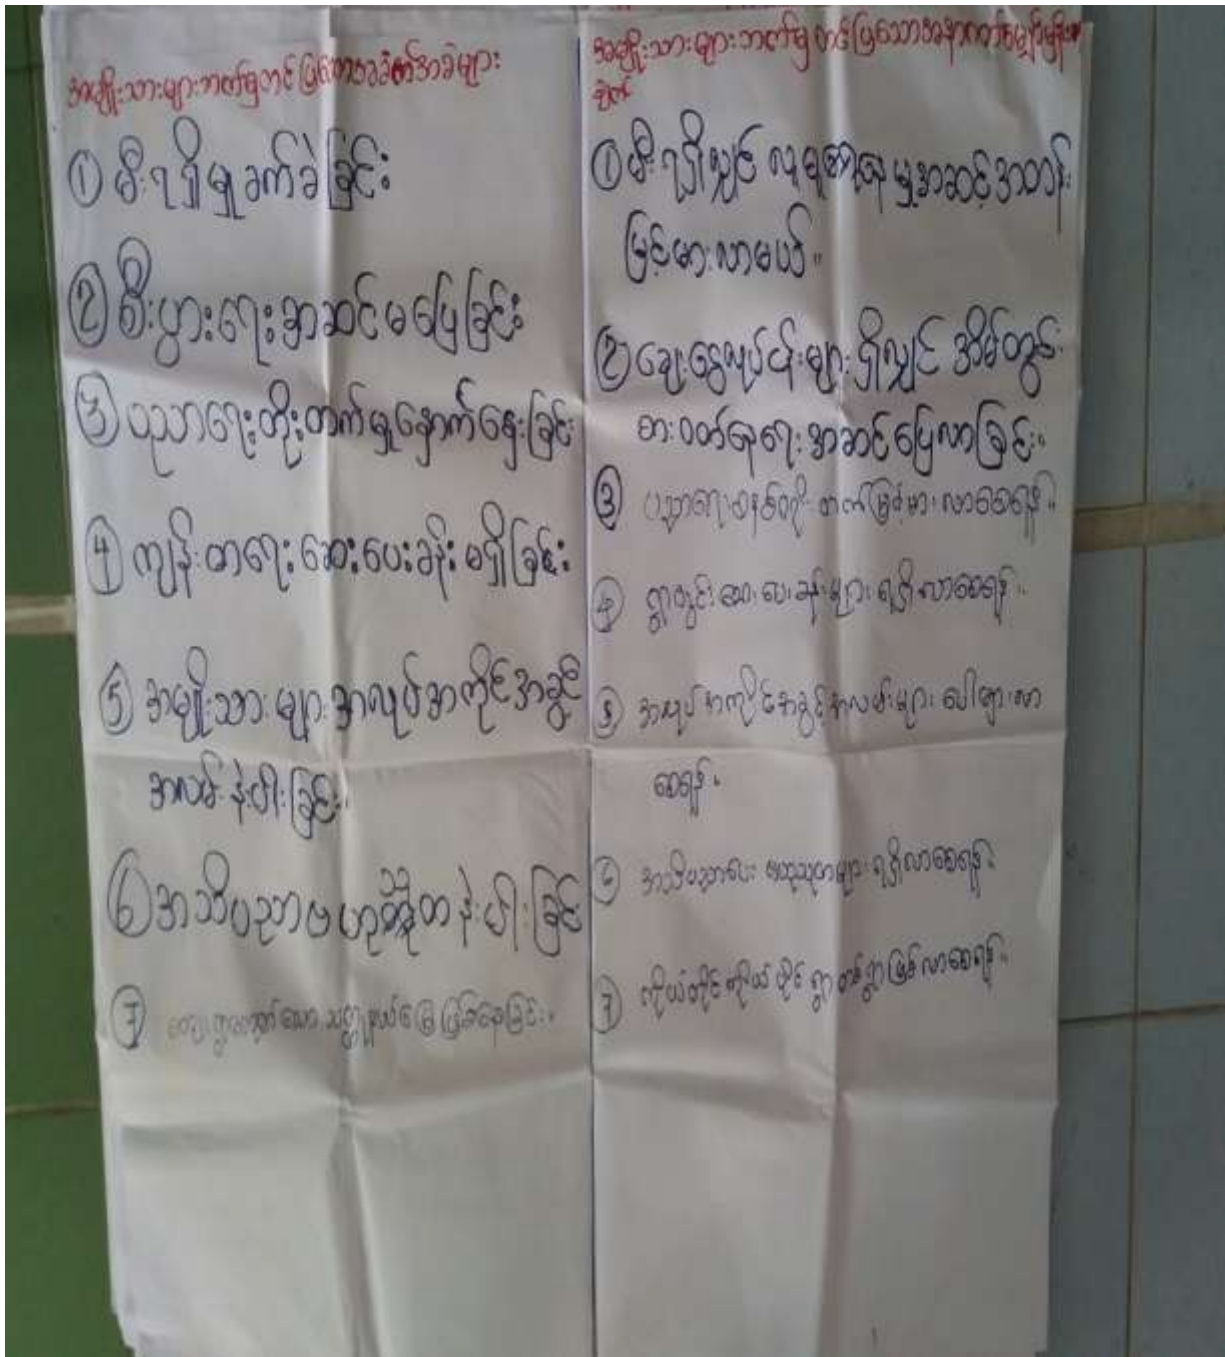 အမျိုးသားများဘက်မှတင်ပြသောအခက်အခဲများ
① မီးရရှိမှုခက်ခဲခြင်း
② စီးပွားရေးအဆင်မပြေခြင်း
③ ပညာရေးတိုးတက်မှုနှောက်နှေးခြင်း
④ ကျန်းမာရေးဆေးပေးခန်းမရှိခြင်း
⑤ အမျိုးသားများအလုပ်အကိုင်အခွင့်
အလမ်းနဲပါးခြင်း။
⑥ အသိပညာဗဟုသုတနဲပါးခြင်း
⑦ ဖြစ်နေခြင်း။
အမျိုးသားများဘက်မှတင်ပြသောအနာဂတ်မျှော်မှန်း
ချက်
① မီးရရှိလျှင် လူမှုစားနေမှုအဆင့်အတန်း
မြင့်မားလာမယ်။
② ချေးငွေလုပ်ငန်းများရှိလျှင် အိမ်တွင်း
စားဝတ်နေရေးအဆင်ပြေလာခြင်း။
③ ပညာရေးစနစ်ပိုးတက်မြင့်မားလာစေရန်။
④ ရွာတွင်းဆေးပေးခန်းများရရှိလာစေရန်။
⑤ အလုပ်အကိုင်အခွင့်အလမ်းများပေါများလာ
စေရန်။
⑥ အသိပညာပေးဗဟုသုတများရရှိလာစေရန်။
⑦ ကိုယ်တိုင်ကိုယ်ပိုင်ရွာတစ်ရွာဖြစ်လာစေရန်။